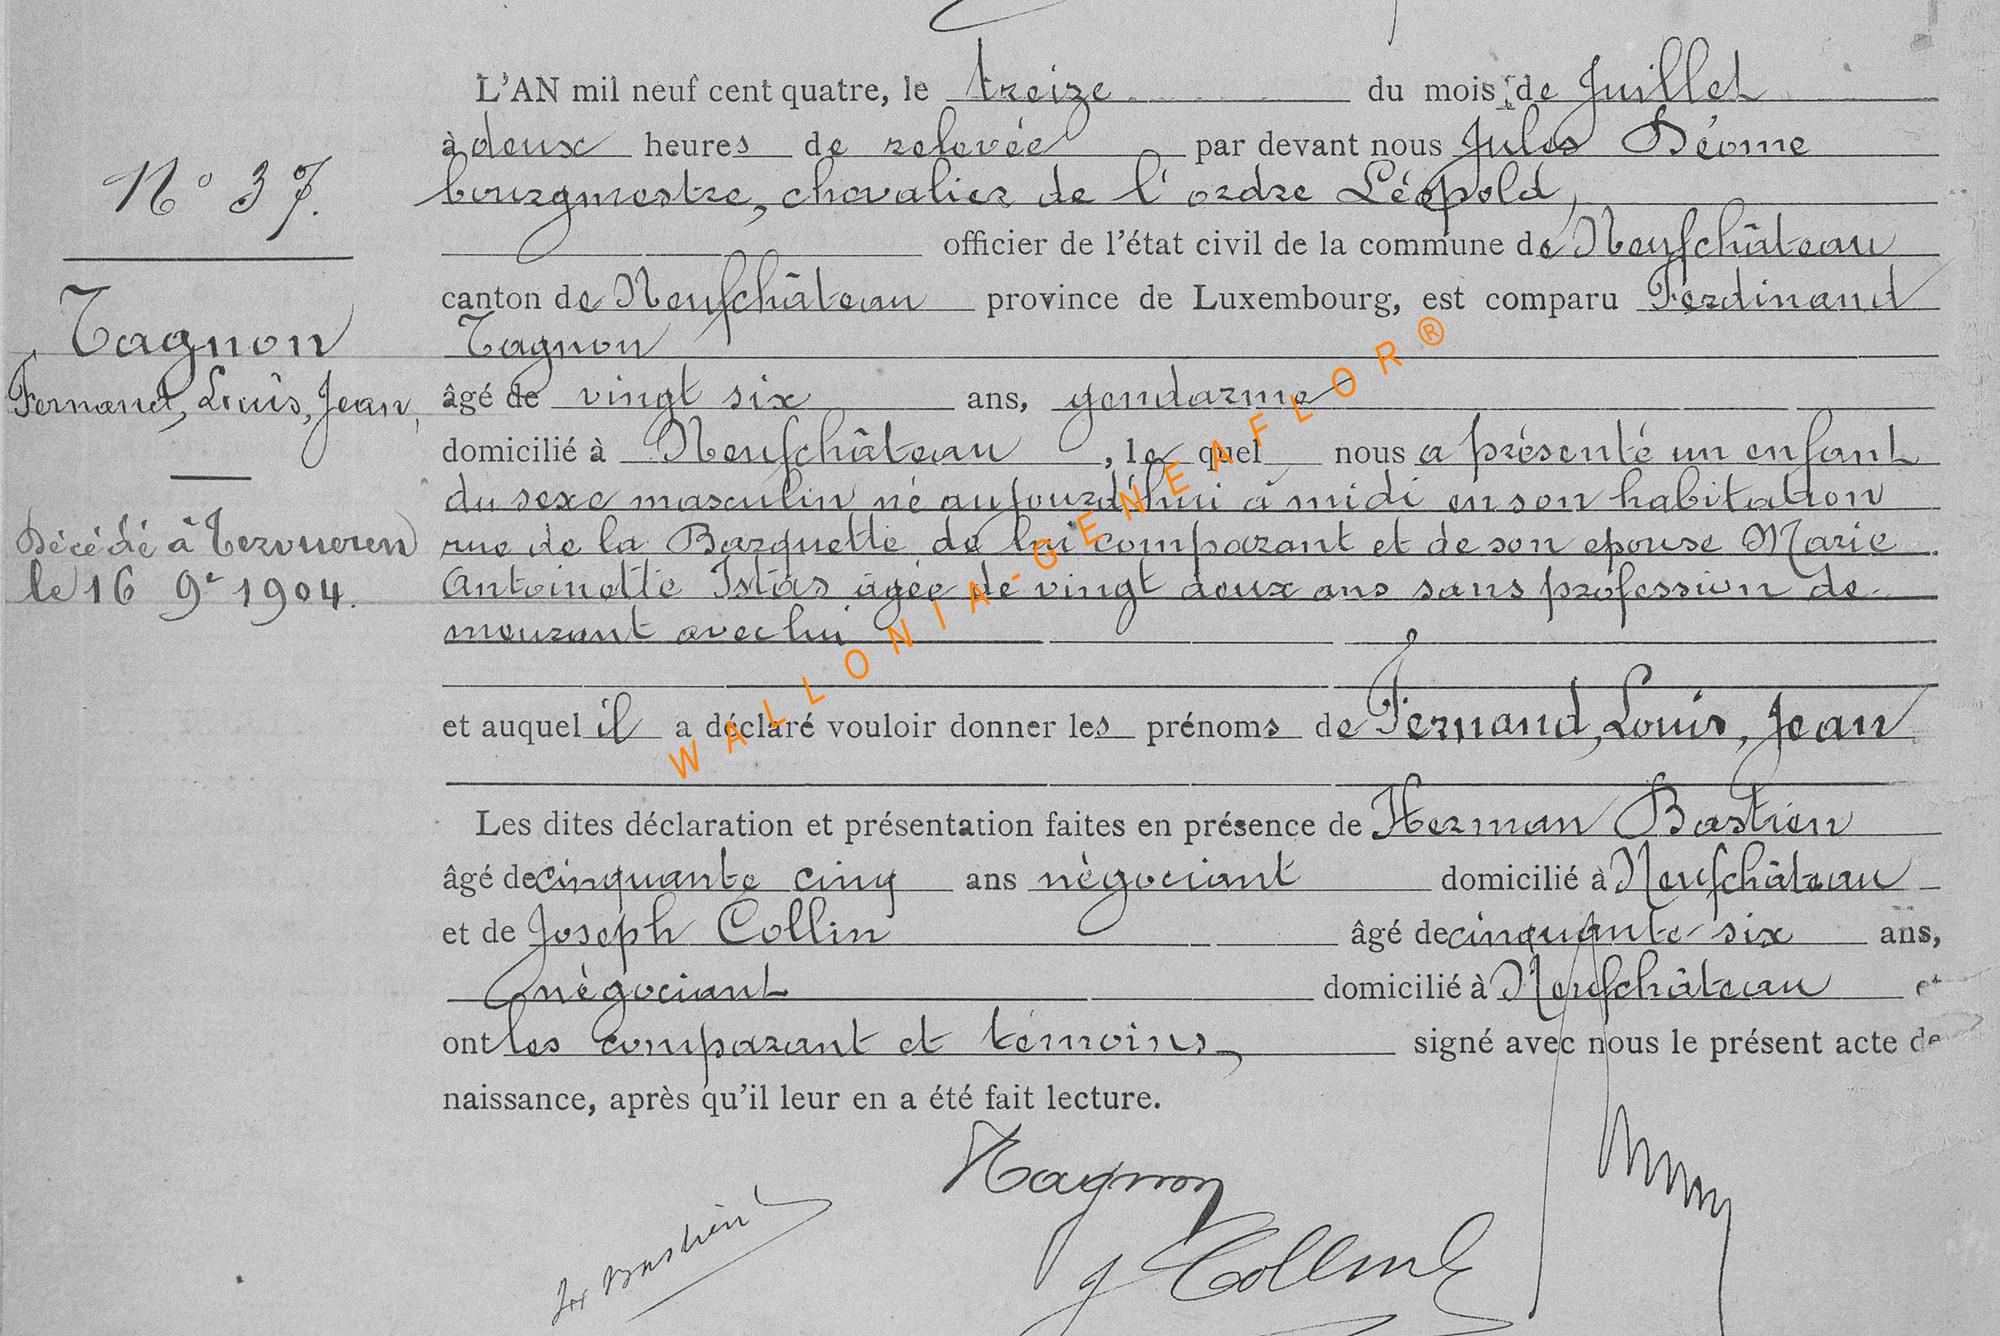 N° 37.
Tagnon
Fernand, Louis, Jean,
Décédé à Tervueren
le 16 9e 1904.
L'AN mil neuf cent quatre, le treize du mois de Juillet
à deux heures de relevée par devant nous Jules Déome
bourgmestre, chevalier de l'ordre Léopold,
officier de l'état civil de la commune de Neufchâteau
canton de Neufchâteau province de Luxembourg, est comparu Ferdinand
Tagnon
âgé de vingt six ans, gendarme
domicilié à Neufchâteau, le quel nous a présenté un enfant
du sexe masculin né aujourd'hui à midi en son habitation
rue de la Barquette de lui comparant et de son epouse Marie
Antoinette Istas agée de vingt deux ans sans profession de-
meurant avec lui
et auquel il a déclaré vouloir donner les prénoms de Fernand, Louis, Jean
Les dites déclaration et présentation faites en présence de Herman Bastien
âgé de cinquante cinq ans négociant domicilié à Neufchâteau
et de Joseph Collin âgé de cinquante-six ans,
négociant domicilié à Neufchâteau et
ont les comparant et témoins, signé avec nous le présent acte de
naissance, après qu'il leur en a été fait lecture.
Tagnon
Bastien
J Collin
WALLONIA-GENEAFLOR®